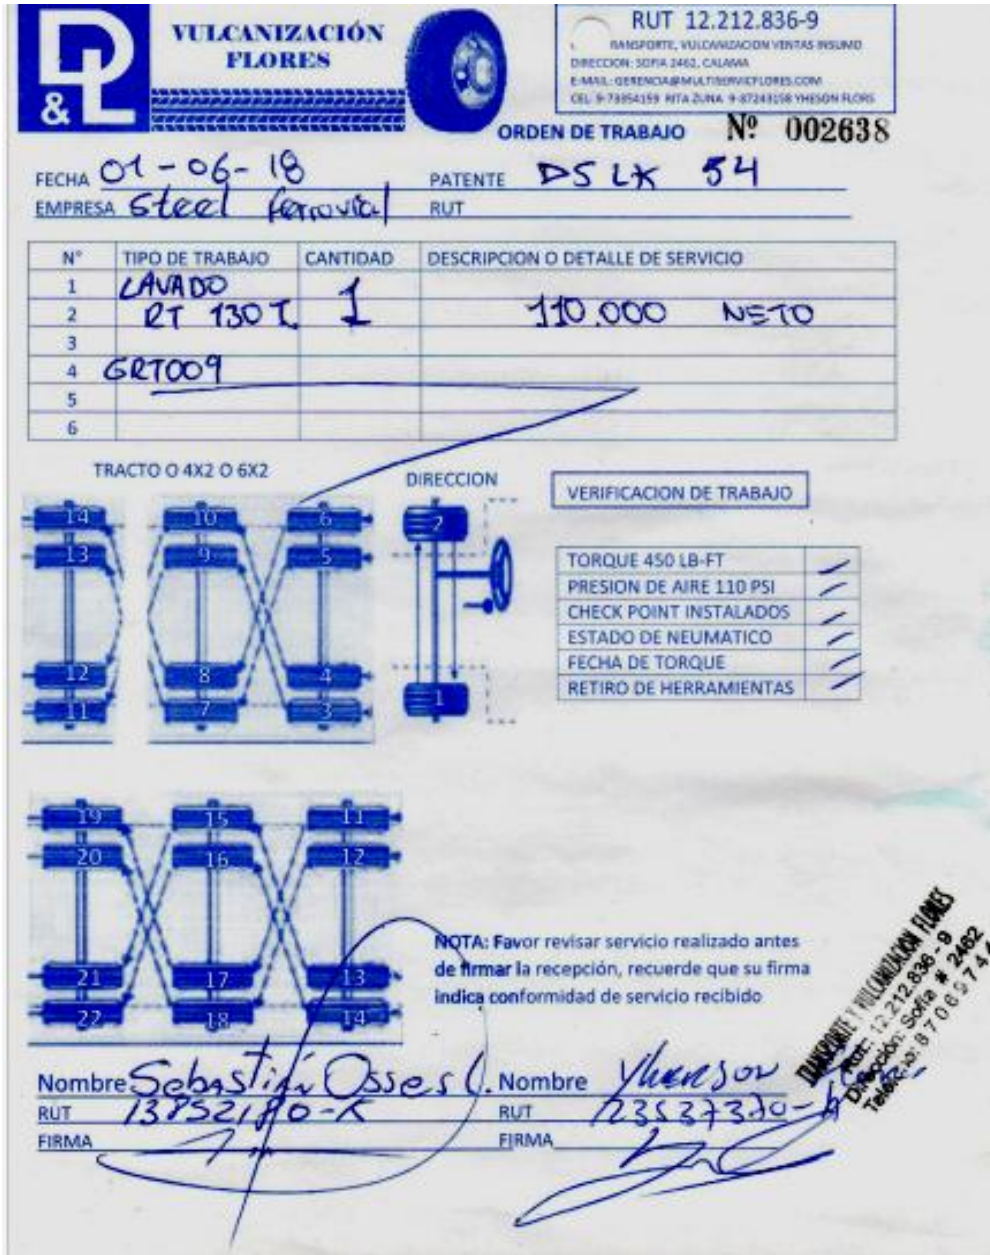 D&L
VULCANIZACIÓN
FLORES
RUT 12.212.836-9
RANSPORTE, VULCANIZACION VENTAS INSUMO
DIRECCION: SOFIA 2462, CALAMA
E-MAIL: GERENCIA@MULTISERVICFLORES.COM
CEL: 9-73954159 RITA ZUNA 9-87243158 YHESON FLORS
ORDEN DE TRABAJO Nº 002638
FECHA 01-06-18 PATENTE DS LK 54
EMPRESA Steel ferrovial RUT
N° TIPO DE TRABAJO CANTIDAD DESCRIPCION O DETALLE DE SERVICIO
1 LAVADO
2 RT 130 T 1 110.000 NETO
3
4 GRT009
5
6
TRACTO O 4X2 O 6X2 DIRECCION
VERIFICACION DE TRABAJO
14 10 6 2
13 9 5
12 8 4
11 7 3 1
TORQUE 450 LB-FT
PRESION DE AIRE 110 PSI
CHECK POINT INSTALADOS
ESTADO DE NEUMATICO
FECHA DE TORQUE
RETIRO DE HERRAMIENTAS
19 15 11
20 16 12
21 17 13
22 18 14
NOTA: Favor revisar servicio realizado antes
de firmar la recepción, recuerde que su firma
indica conformidad de servicio recibido
TRANSPORTE Y VULCANIZACION FLORES
Rut.: 12.212.836-9
Dirección: Sofia # 2462
Nombre Sebastián Osses L. Nombre Yhenson
RUT 13852180-K RUT 23537370-
FIRMA FIRMA